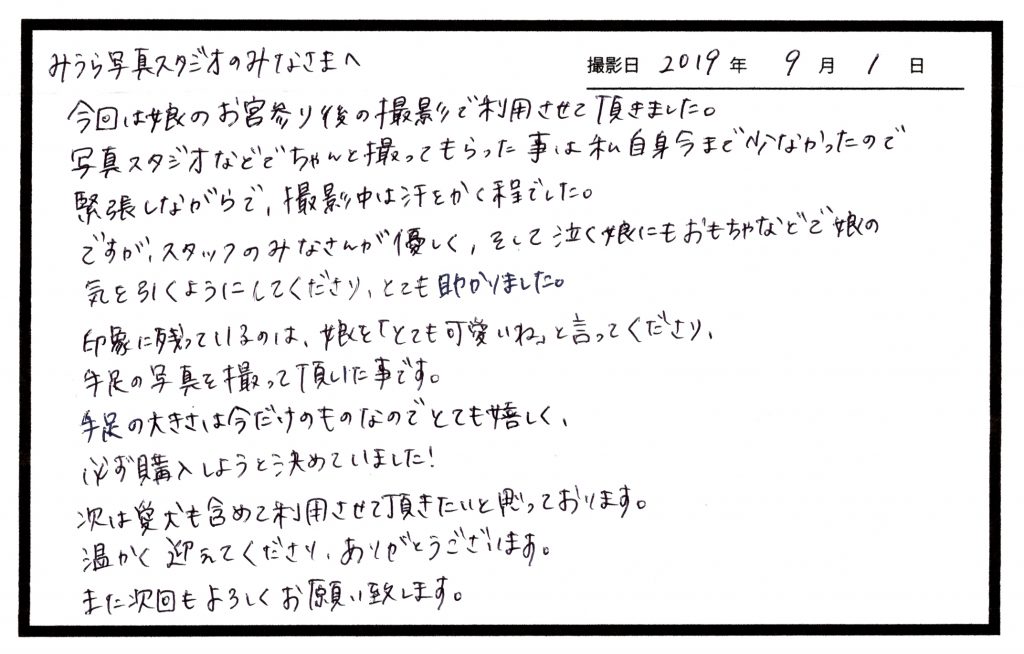 みうら写真スタジオのみなさまへ
撮影日 2019 年 9 月 1 日
今回は娘のお宮参り後の撮影で利用させて頂きました。
写真スタジオなどでちゃんと撮ってもらった事は私自身今まで少なかったので
緊張しながらで、撮影中は汗をかく程でした。
ですが、スタッフのみなさんが優しく、そして泣く娘にもおもちゃなどで娘の
気を引くようにしてくださり、とても助かりました。
印象に残っているのは、娘を「とても可愛いね」と言ってくださり、
手足の写真を撮って頂いた事です。
手足の大きさは今だけのものなのでとても嬉しく、
必ず購入しようと決めていました!
次は愛犬も含めて利用させて頂きたいと思っております。
温かく迎えてくださり、ありがとうございます。
また次回もよろしくお願い致します。